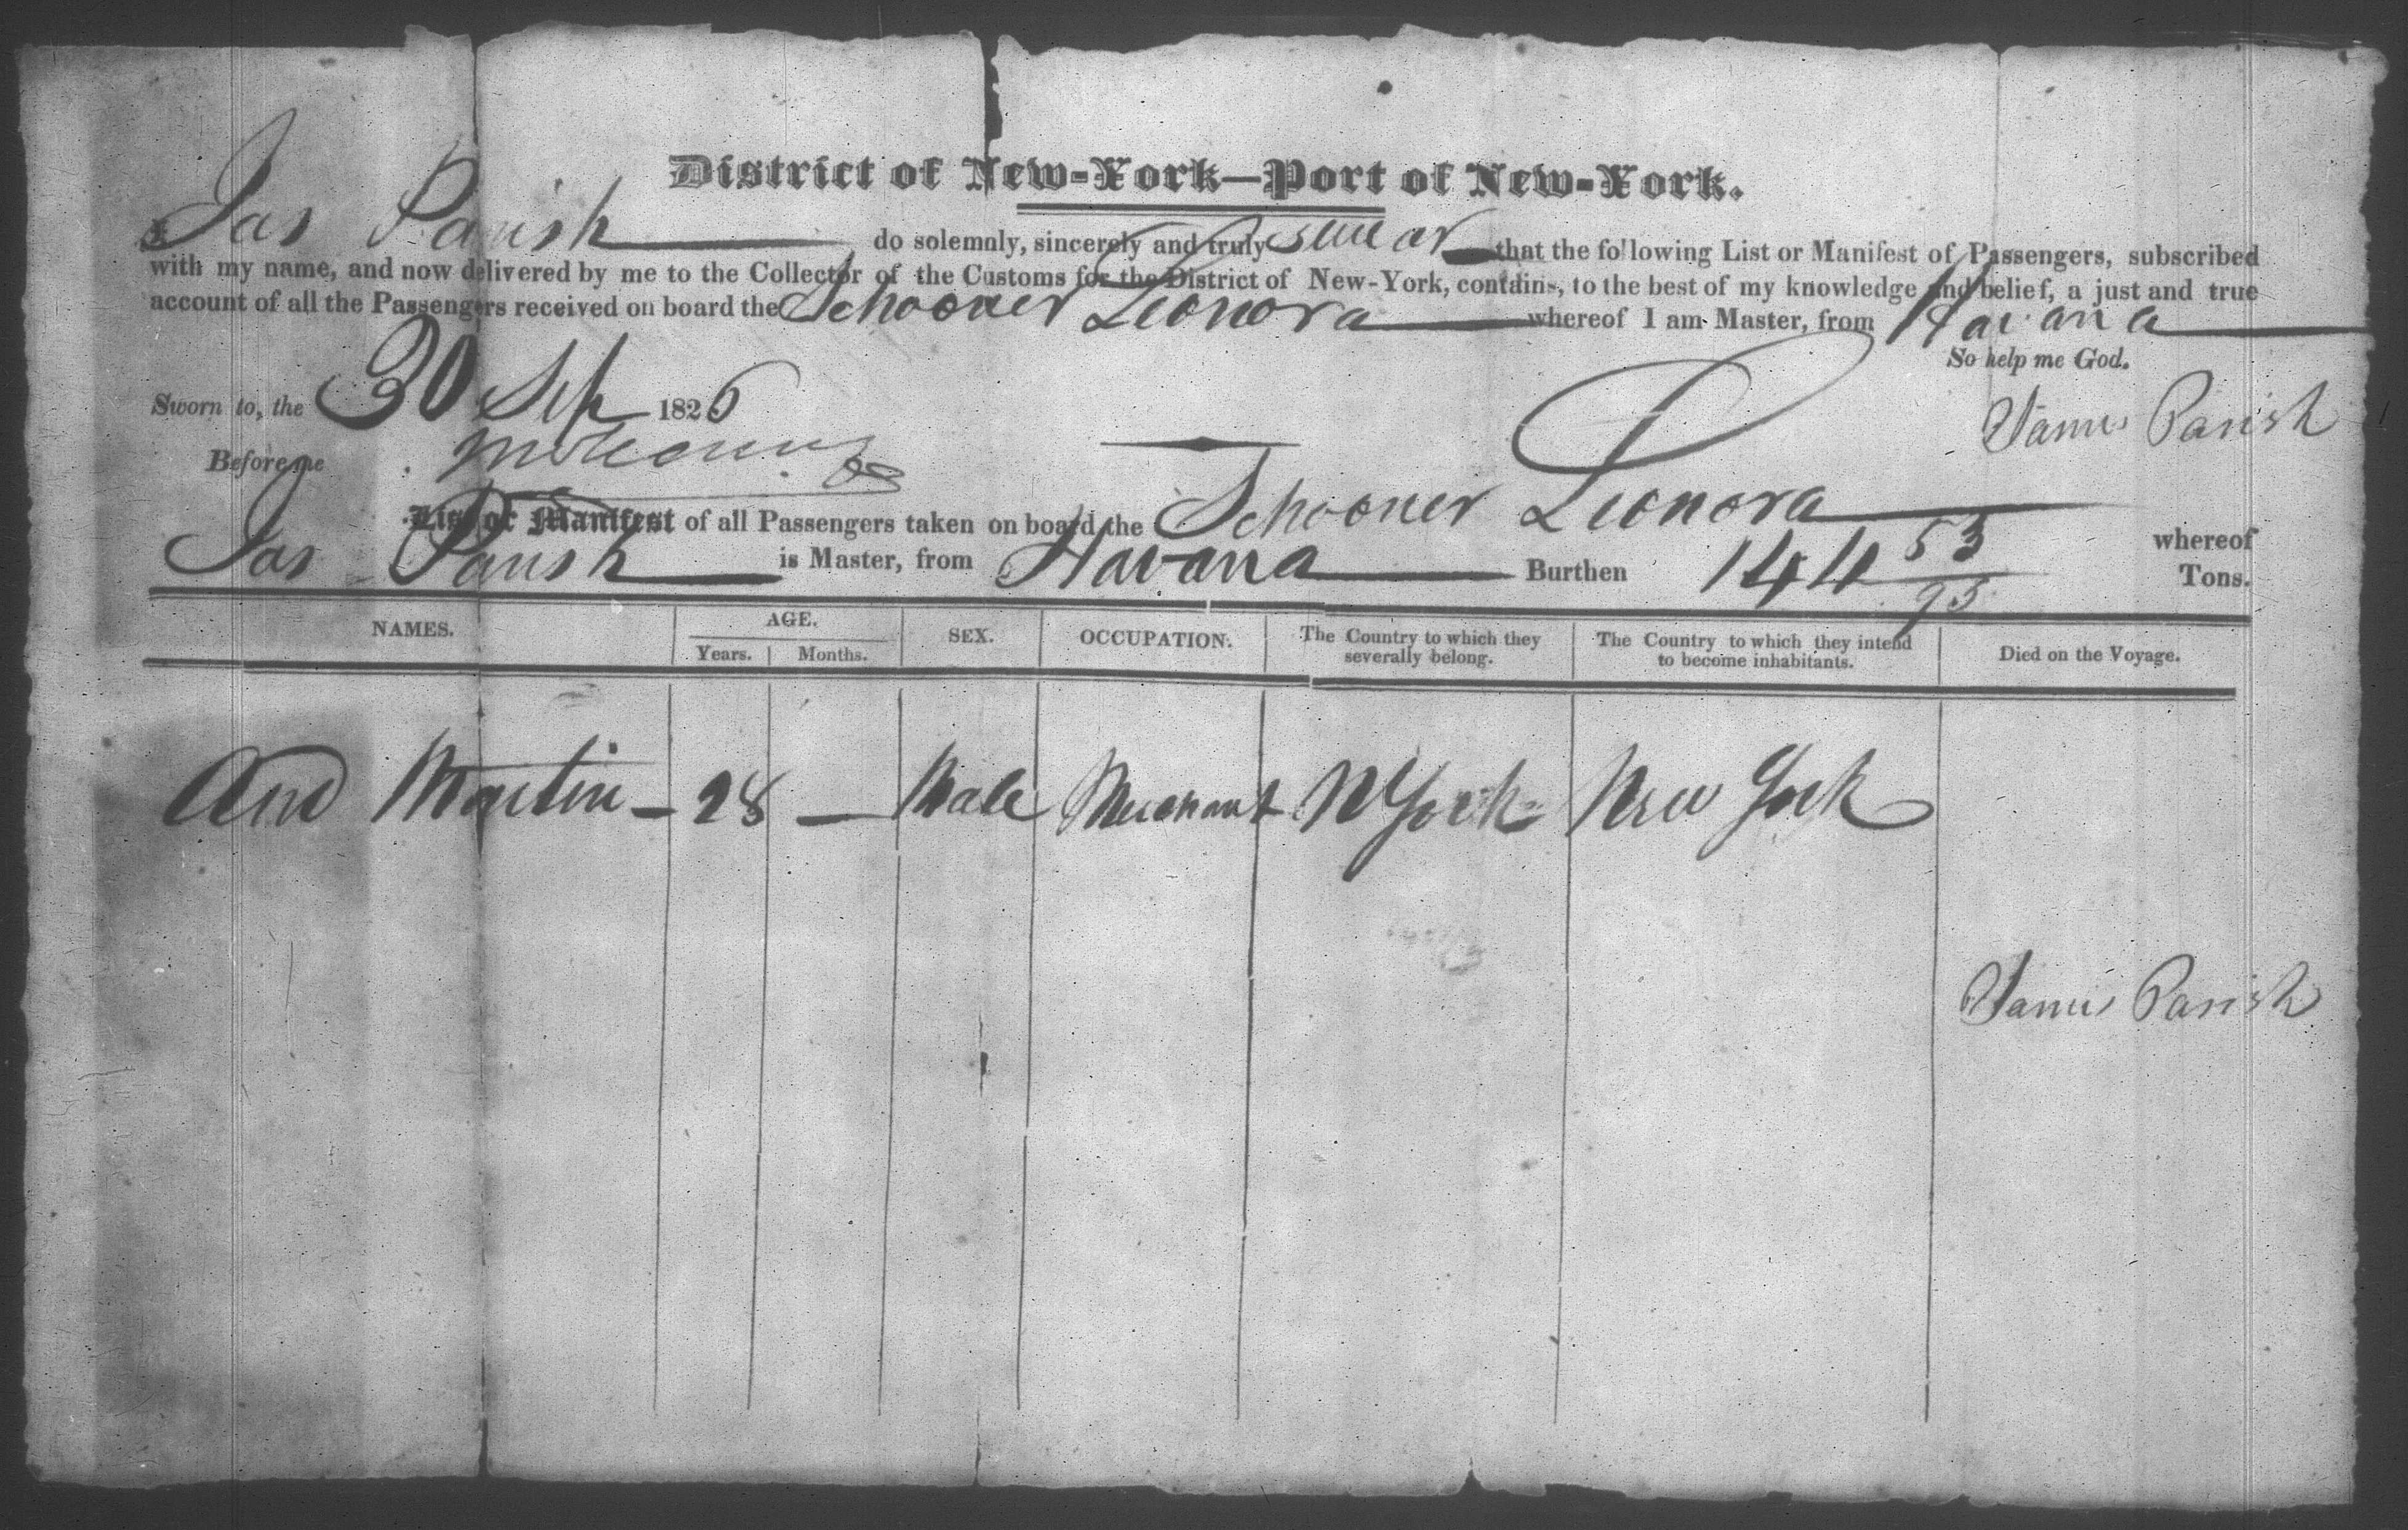 District of New-York—Port of New-York.
Jas Parish do solemnly, sincerely and truly swear that the following List or Manifest of Passengers, subscribed
with my name, and now delivered by me to the Collector of the Customs for the District of New-York, contains, to the best of my knowledge and belief, a just and true
account of all the Passengers received on board the Schooner Leonora whereof I am Master, from Havana
So help me God.
Sworn to, the 30 Sep 1826
James Parish
Before me
List or Manifest of all Passengers taken on board the Schooner Leonora whereof
Jas Parish is Master, from Havana Burthen 144 53/95 Tons.
NAMES. AGE. SEX. OCCUPATION. The Country to which they severally belong. The Country to which they intend to become inhabitants. Died on the Voyage.
Years. Months.
And Martin — 28 — Male Merchant N York New York
James Parish